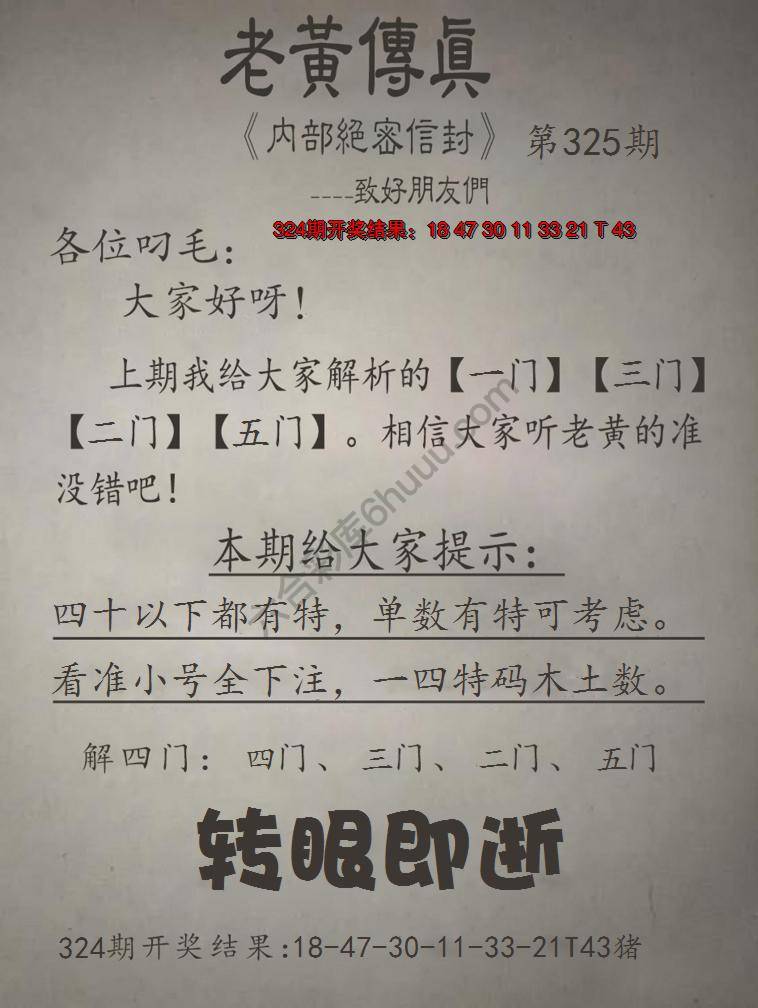 老黃傳真
《内部絕密信封》 第325期
----致好朋友們
324期开奖结果：18 47 30 11 33 21 T 43
各位叼毛：
大家好呀！
上期我给大家解析的【一门】【三门】
【二门】【五门】。相信大家听老黄的准
没错吧！
本期给大家提示：
四十以下都有特，单数有特可考虑。
看准小号全下注，一四特码木土数。
解四门： 四门、 三门、 二门、 五门
转眼即逝
324期开奖结果:18-47-30-11-33-21T43猪
六合彩库6huuu.com